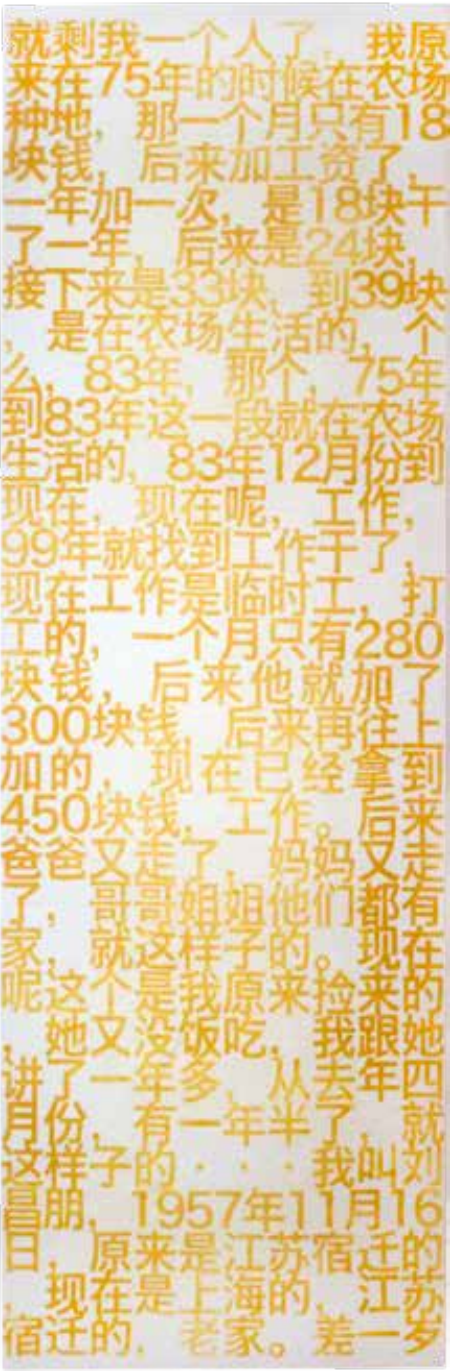 就剩我一个人了，我原
来在75年的时候在农场
种地，那一个月只有18
块钱，后来加工资了，
一年加一次，是18块午
了一年，后来是24块，
接下来是33块，到39块
，是在农场生活的，个
么，83年，那个，75年
到83年这一段就在农场
生活的，83年12月份到
现在，现在呢，工作，
99年就找到工作干了，
现在工作是临时工，打
工的，一个月只有280
块钱，后来他就加了
300块钱，后来再往上
加的，现在已经拿到
450块钱，工作。后来
爸爸又走了，妈妈又走
了，哥哥姐姐他们都有
家，就这样子的。现在
呢，这个是我原来捡来的
，她又没饭吃，我跟她
讲了一年多，从去年四
月份，有一年半了，就
这样子的···我叫刘
昌朋，1957年11月16
日，原来是江苏宿迁的
，现在是上海的，江苏
宿迁的，老家。差一岁